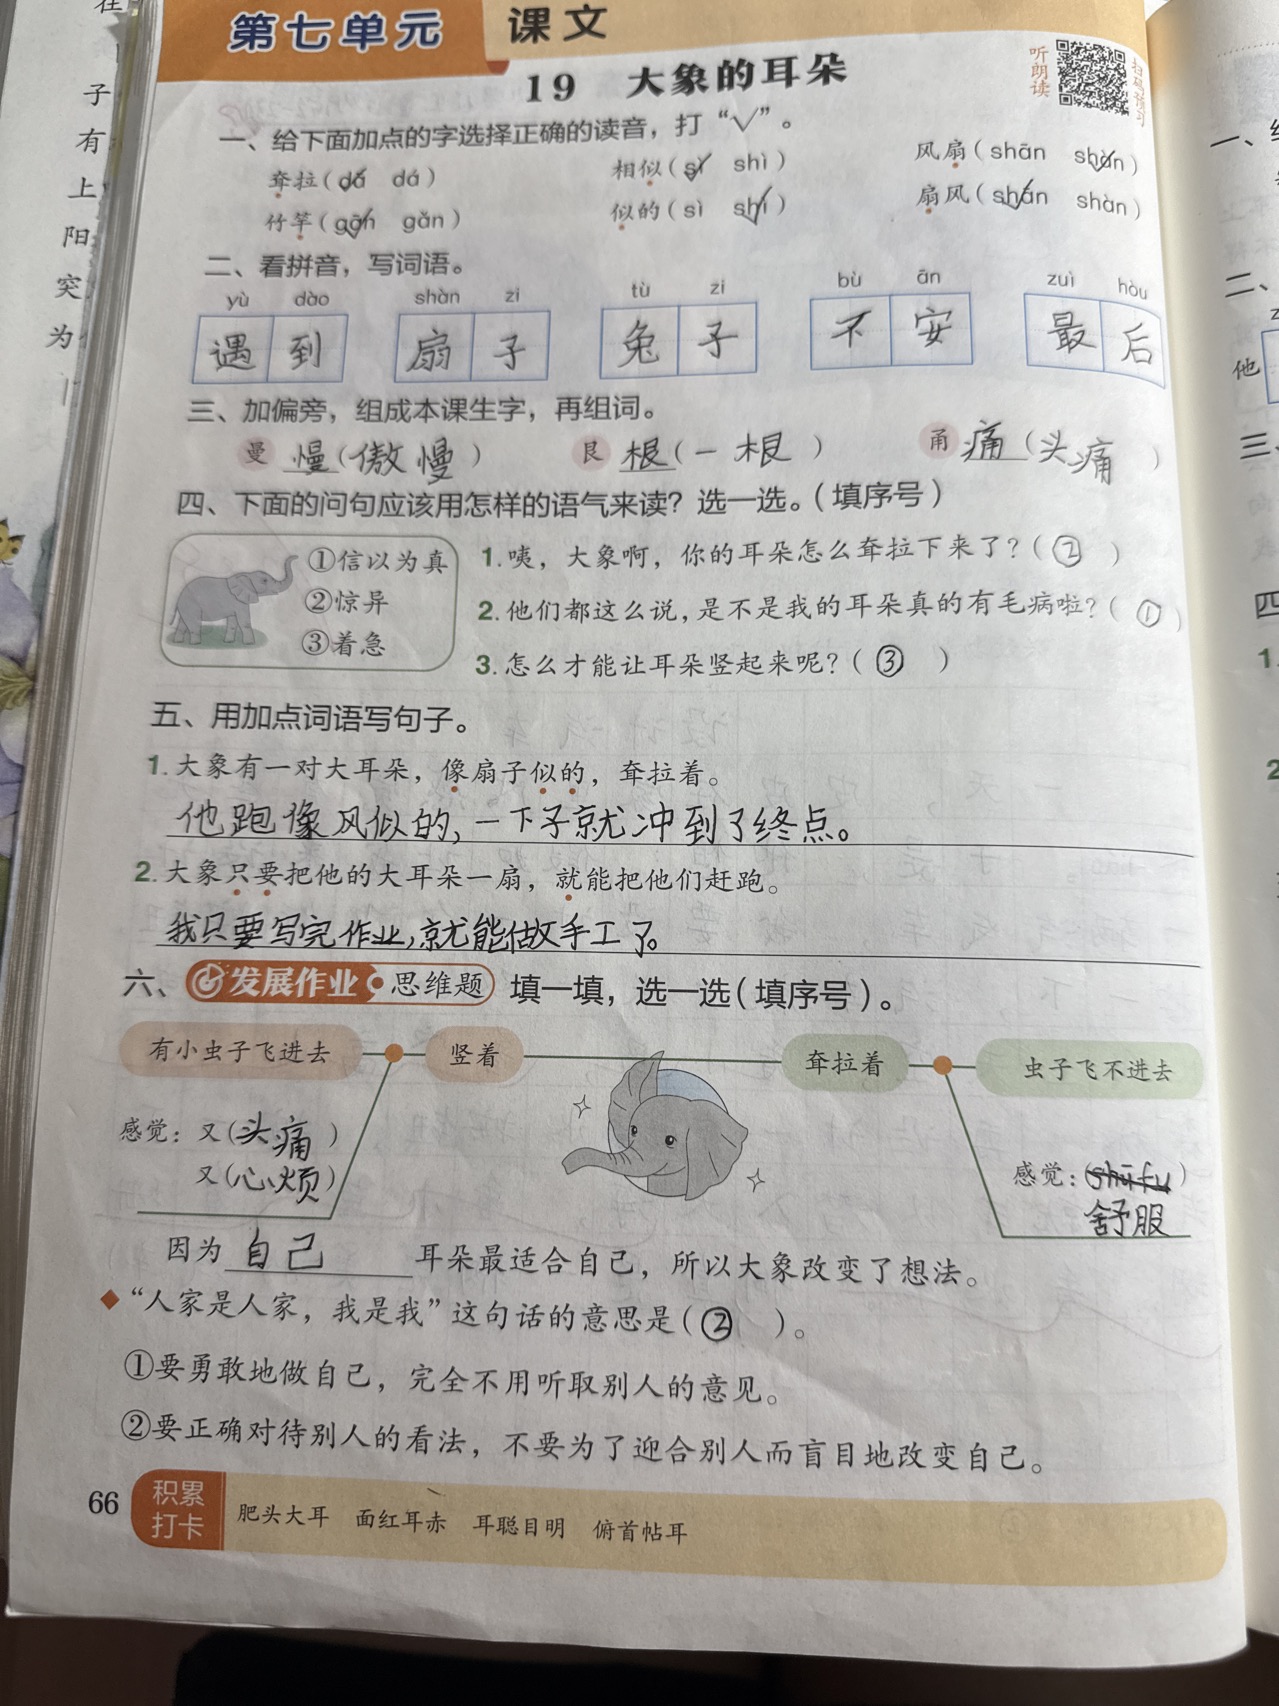 第七单元 课文
19 大象的耳朵
听朗读
扫码预习
一、给下面加点的字选择正确的读音，打“√”。
耷拉(dā dá) 相似(sì shì) 风扇(shān shàn)
竹竿(gān gǎn) 似的(sì shì) 扇风(shān shàn)
二、看拼音，写词语。
yù dào shàn zi tù zi bù ān zuì hòu
遇到 扇子 兔子 不安 最后
三、加偏旁，组成本课生字，再组词。
曼 慢(傲慢) 艮 根(一根) 甬 痛(头痛)
四、下面的问句应该用怎样的语气来读？选一选。(填序号)
①信以为真
②惊异
③着急
1.咦，大象啊，你的耳朵怎么耷拉下来了？(②)
2.他们都这么说，是不是我的耳朵真的有毛病啦？(①)
3.怎么才能让耳朵竖起来呢？(③)
五、用加点词语写句子。
1.大象有一对大耳朵，像扇子似的，耷拉着。
他跑像风似的，一下子就冲到了终点。
2.大象只要把他的大耳朵一扇，就能把他们赶跑。
我只要写完作业，就能做手工了。
六、发展作业 思维题 填一填，选一选(填序号)。
有小虫子飞进去 竖着 耷拉着 虫子飞不进去
感觉：又(头痛)
又(心烦)
感觉：(shūfu)
舒服
因为自己耳朵最适合自己，所以大象改变了想法。
◆“人家是人家，我是我”这句话的意思是(②)。
①要勇敢地做自己，完全不用听取别人的意见。
②要正确对待别人的看法，不要为了迎合别人而盲目地改变自己。
66 积累打卡 肥头大耳 面红耳赤 耳聪目明 俯首帖耳